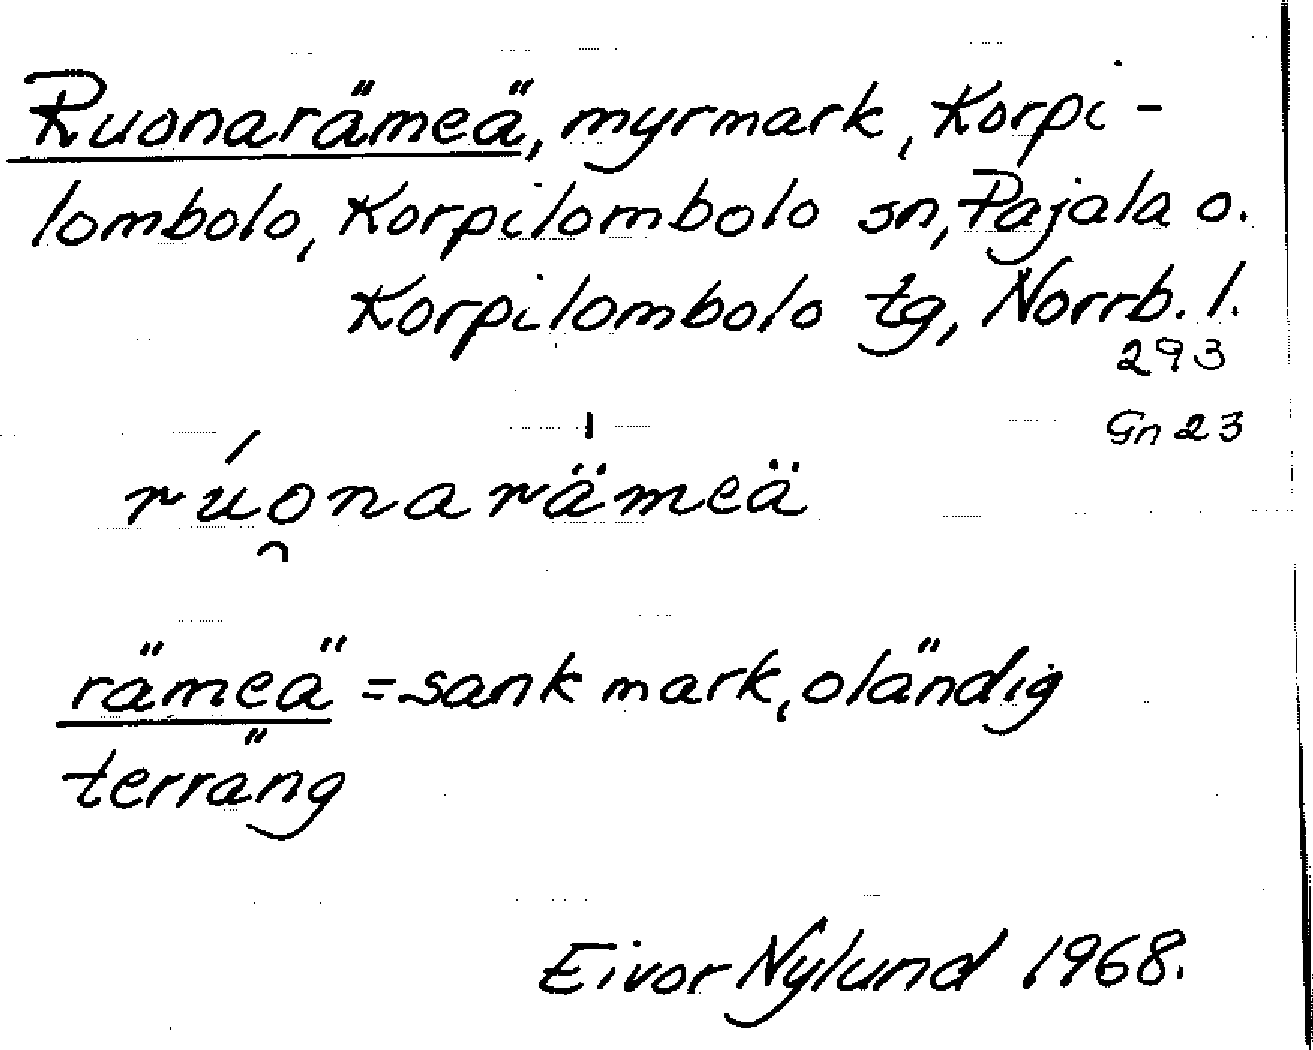 Ruonarämeä, myrmark, Korpi-
lombolo, Korpilombolo sn, Pajala o.
Korpilombolo tg, Norrb. l.
293
Gn 23
rúo̯narä̍meä
rämeä = sank mark, oländig
terräng
Eivor Nylund 1968.